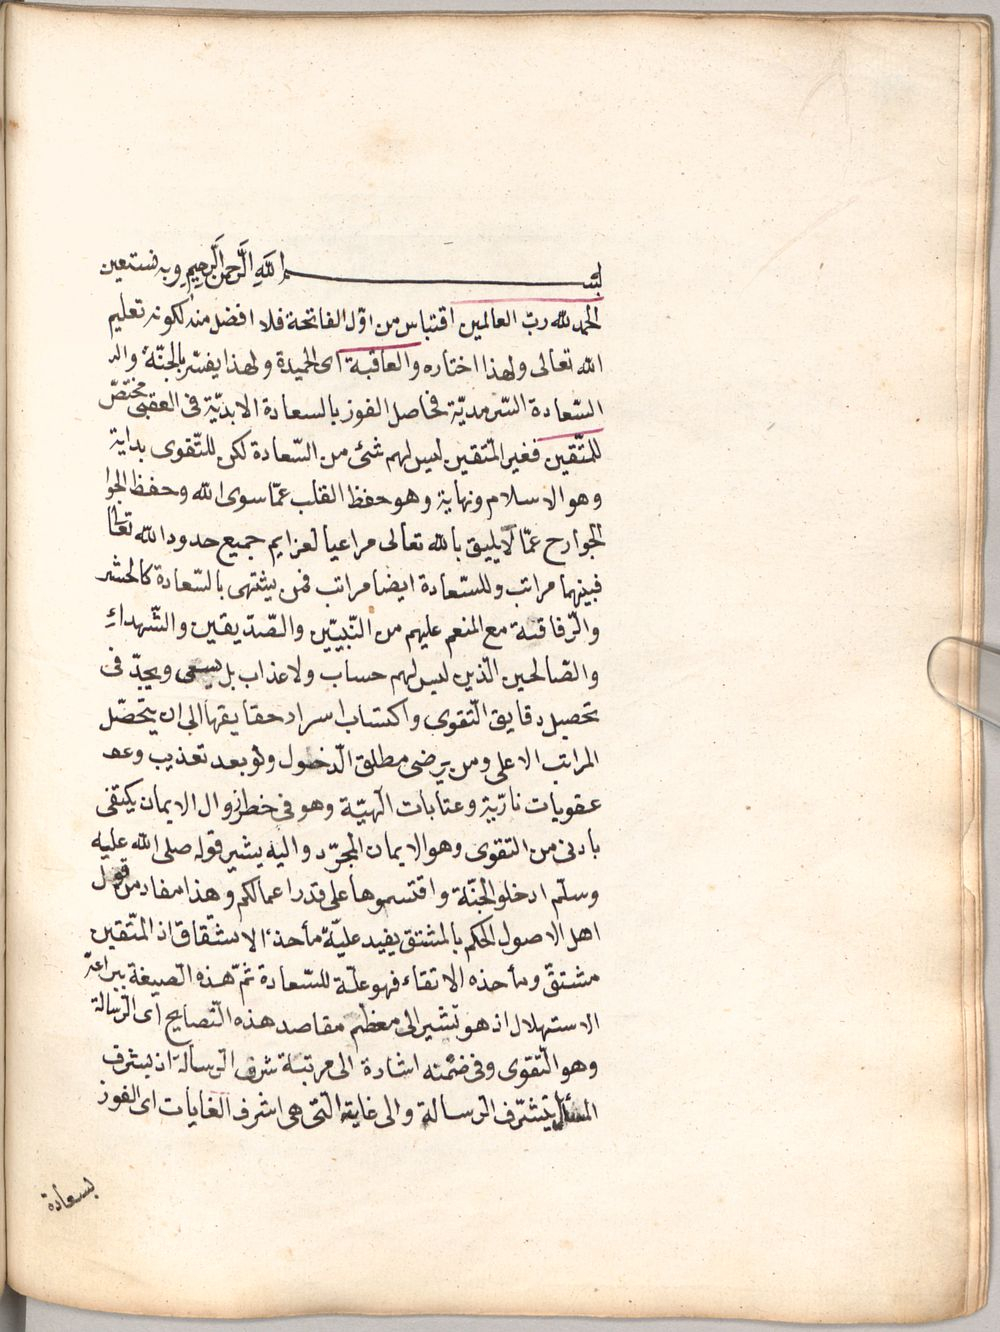 بسم الله الرحمن الرحيم وبه نستعين
الحمد لله ربّ العالمين اقتباس من اوّل الفاتحة فلا افضل منه لكونه تعليم
الله تعالى ولهذا اختاره والعاقبة اى الحميدة ولهذا يفسّر بالجنّة والد
السّعادة السّرمديّة فحاصل الفوز بالسعادة الابديّة فى العقبى مختصّ
للمتّقين فغير المتّقين ليس لهم شئ من السّعادة لكن للتّقوى بداية
وهو الاسلام ونهاية وهو حفظ القلب عمّا سوى الله وحفظ الجوا
الجوارح عمّا لا يليق بالله تعالى مراعيا لعزايم جميع حدود الله تعالى
فبينهما مراتب وللسّعادة ايضا مراتب فمن يشتهى بالسّعادة كالحشر
والرّفاقة مع المنعم عليهم من النّبيّين والصّدّيقين والشّهداء
والصّالحين الّذين ليس لهم حساب ولا عذاب بل يسعى ويجدّ فى
تحصيل دقايق التّقوى واكتساب اسرار حقايقها الى ان يتحصّل
المراتب الاعلى ومن يرضى مطلق الدّخول ولو بعد تعذيب وعد
عقوبات ناريّة وعتابات الٓهيّة وهو فى خطر زوال الايمان يكتفى
بادنى من التقوى وهو الايمان المجرّد واليه يشير قوله صلى الله عليه
وسلّم ادخلو الجنّة واقتسموها على قدر اعمالكم وهذا مفاد من قول
اهل الاصول الحكم بالمشتق يفيد عليّة مأخذ الاشتقاق اذ المتّقين
مشتقّ ومأخذه الاتقاء فهو علّة للسّعادة ثمّ هذه الصّيغة ببراعة
الاستهلال اذ هو تشير الى معظم مقاصد هذه النّصايح اى الرّسالة
وهو التّقوى وفى ضمنه اشارة الى مرتبة شرف الرسالة اذ بشرف
المسائل يتشرّف الرسالة والى غاية التى هى اشرف الغايات اى الفوز
بسعادة